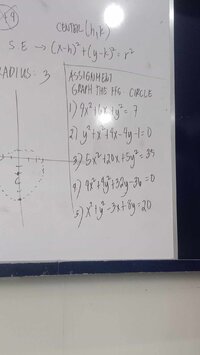 CENTER (h,k)
S E → (x-h)²+(y-k)²=r²
RADIUS: 3
ASSIGNMENT
GRAPH THE FFG. CIRCLE
2) y²+x²+14x-4y-1=0
3) 5x²+20x+5y²=35
4) 9x²+9y²+32y-36=0
5) x²+y²-3x+8y=20